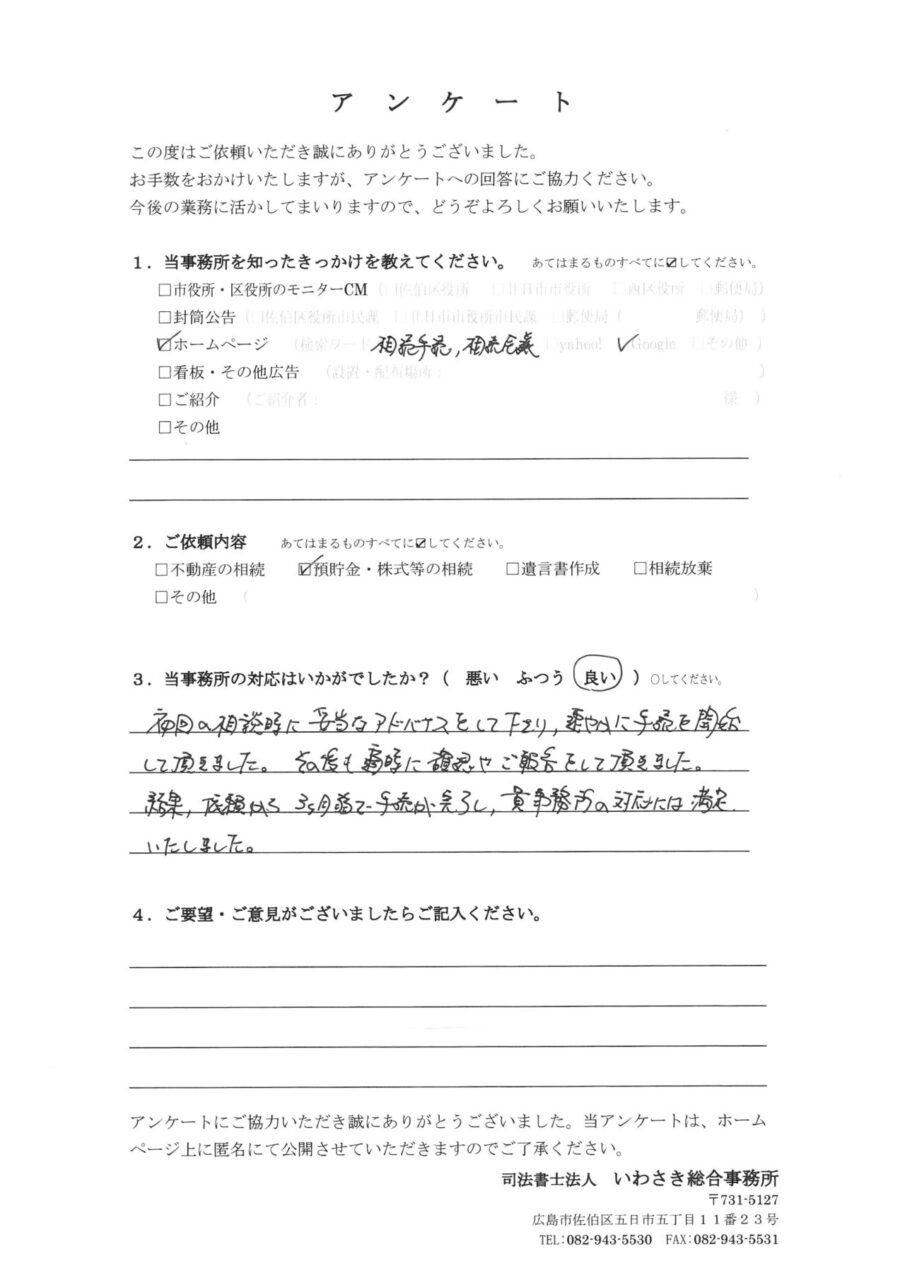 アンケート
この度はご依頼いただき誠にありがとうございました。
お手数をおかけいたしますが、アンケートへの回答にご協力ください。
今後の業務に活かしてまいりますので、どうぞよろしくお願いいたします。
1．当事務所を知ったきっかけを教えてください。 あてはまるものすべてに☑してください。
□市役所・区役所のモニターCM（□佐伯区役所 □廿日市市役所 □西区役所 □郵便局）
□封筒公告（□佐伯区役所市民課 □廿日市市役所市民課 □郵便局（ 郵便局））
☑ホームページ （検索ワード 相続手続，相続会議 □yahoo! ☑Google □その他）
□看板・その他広告 （設置・配布場所： ）
□ご紹介 （ご紹介者： 様 ）
□その他
2．ご依頼内容 あてはまるものすべてに☑してください。
□不動産の相続 ☑預貯金・株式等の相続 □遺言書作成 □相続放棄
□その他 （ ）
3．当事務所の対応はいかがでしたか？（ 悪い ふつう 良い ）○してください。
初回の相談時に妥当なアドバイスをして下さり，速やかに手続を開始
して頂きました。その後も適時に確認やご報告をして頂きました。
結果，依頼から3ヶ月弱で手続が完了し，貴事務所の対応には満足
いたしました。
4．ご要望・ご意見がございましたらご記入ください。
アンケートにご協力いただき誠にありがとうございました。当アンケートは、ホーム
ページ上に匿名にて公開させていただきますのでご了承ください。
司法書士法人 いわさき総合事務所
〒731-5127
広島市佐伯区五日市五丁目１１番２３号
TEL:082-943-5530 FAX:082-943-5531